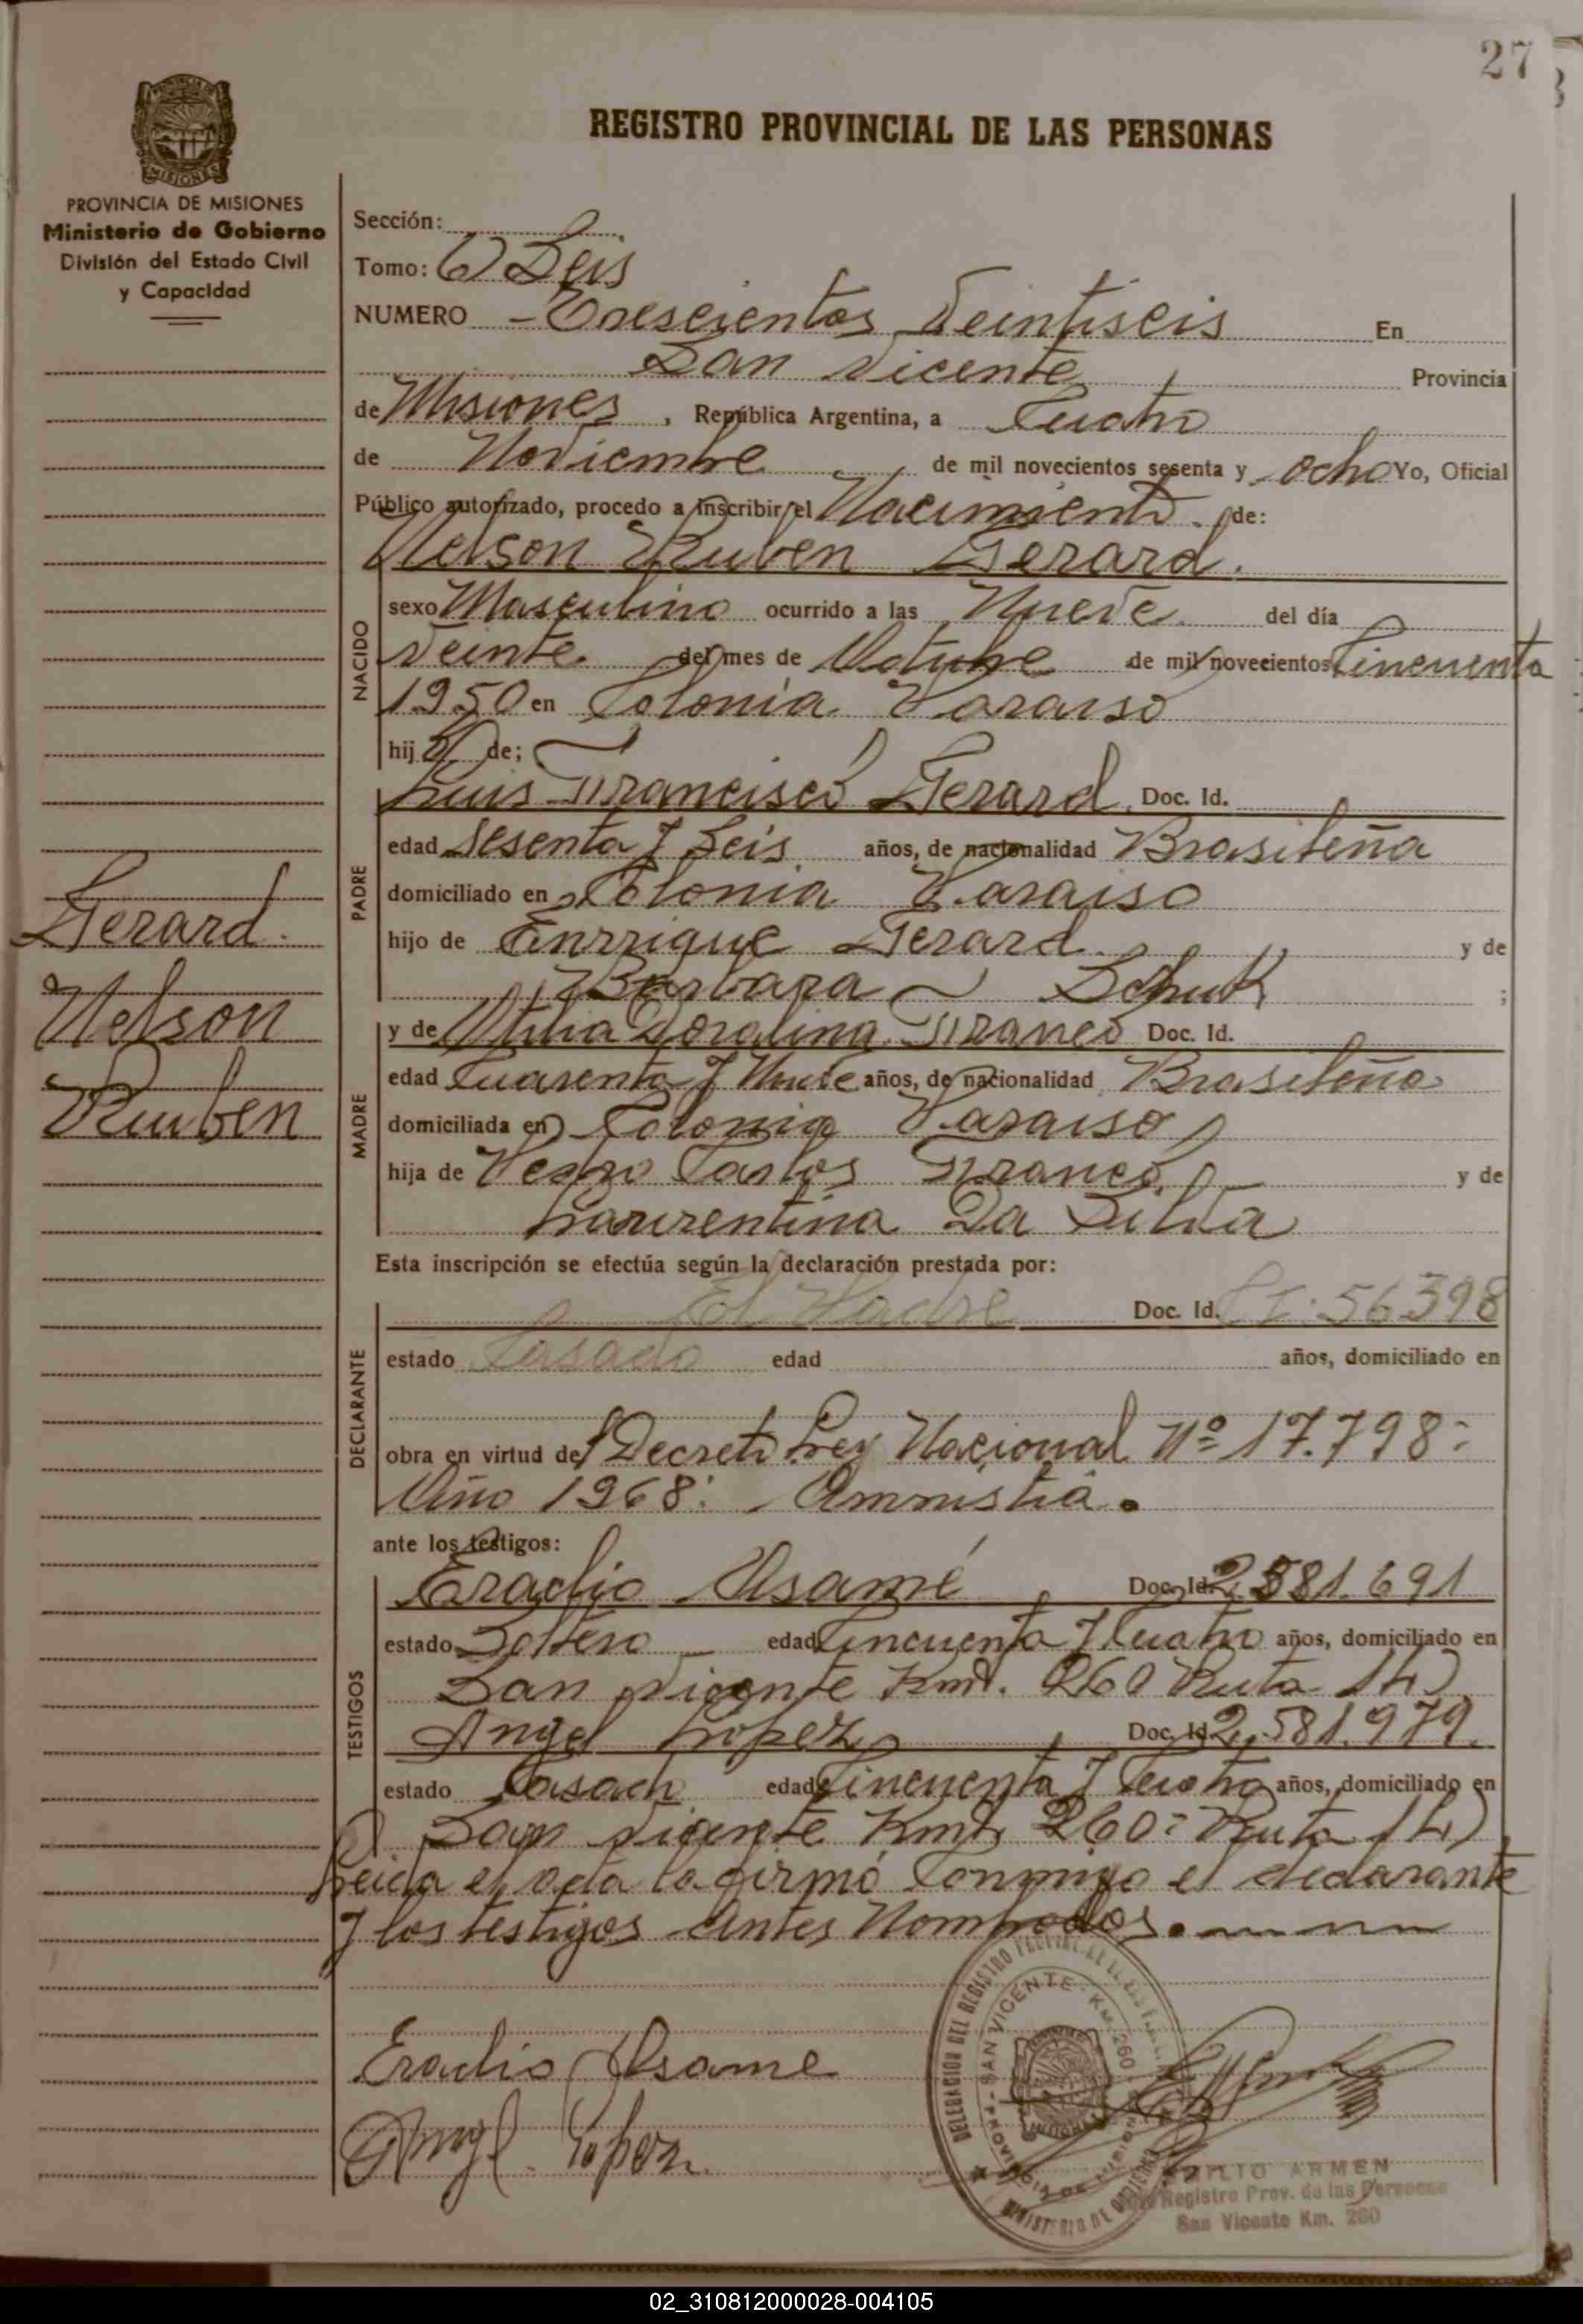 27
REGISTRO PROVINCIAL DE LAS PERSONAS
PROVINCIA DE MISIONES
Ministerio de Gobierno
División del Estado Civil
y Capacidad
Sección:
Tomo: 6) Seis
NUMERO - Trescientos Veintiseis En
San Vicente Provincia
de Misiones, República Argentina, a Cuatro
de Noviembre de mil novecientos sesenta y ocho Yo, Oficial
Público autorizado, procedo a inscribir el Nacimiento de:
Nelson Ruben Gerard.
NACIDO
sexo Masculino ocurrido a las Nueve del día
Veinte del mes de Octubre de mil novecientos Cincuenta
1950 en Colonia Paraiso
hijo de;
Luis Francisco Gerard Doc. Id.
PADRE
edad Sesenta y Seis años, de nacionalidad Brasileña
domiciliado en Colonia Paraiso
hijo de Enrrique Gerard y de
Barbara Schuk ;
Gerard.
Nelson
Ruben
y de Otilia Doralina Franco Doc. Id.
MADRE
edad Cuarenta y Nueve años, de nacionalidad Brasileña
domiciliada en Colonia Paraiso
hija de Pedro Carlos Franco y de
Laurentina Da Silva
Esta inscripción se efectúa según la declaración prestada por:
DECLARANTE
El Padre Doc. Id. C.I. 56398
estado Casado edad años, domiciliado en
obra en virtud de Decreto Ley Nacional Nº 17.798:
Año 1968: Amnistia.
ante los testigos:
TESTIGOS
Eradio Asamé Doc. Id. 2.581.691
estado Soltero edad Cincuenta y Cuatro años, domiciliado en
San Vicente Kmt. 260 Ruta 14)
Angel Lopez Doc. Id. 2.581.979.
estado Casado edad Cincuenta y Cuatro años, domiciliado en
San Vicente Kmt. 260: Ruta 14)
Leida el acta la firmó Conmigo el declarante
y los testigos Antes Nombrados.
Eradio Asame
Angel Lopez
SAN VICENTE - KM. 260
EMILIO ARMEN
Registro Prov. de las Personas
San Vicente Km. 260
02_310812000028-004105